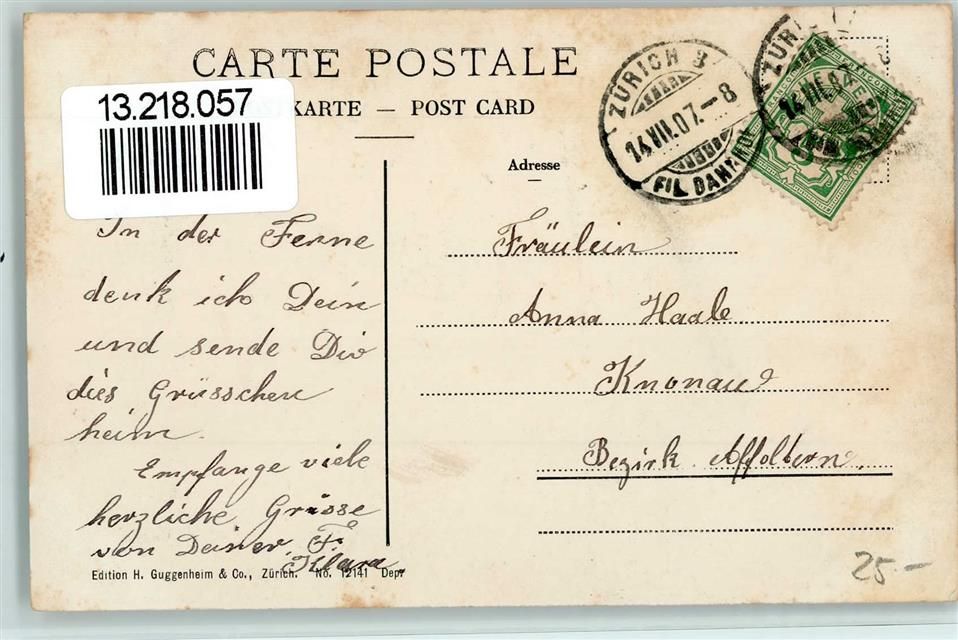 CARTE POSTALE
13.218.057
KARTE — POST CARD
ZÜRICH 3
14.VII.07.–8
FIL. BAHNHOF
Adresse
In der Ferne
denk ich Dein
und sende Dir
dies Grüsschen
heim.
Empfange viele
herzliche Grüsse
von Deiner F.
Klara
Fräulein
Anna Haale
Knonau
Bezirk Affoltern.
Edition H. Guggenheim & Co., Zürich. No. 12141 Dep.
25.–